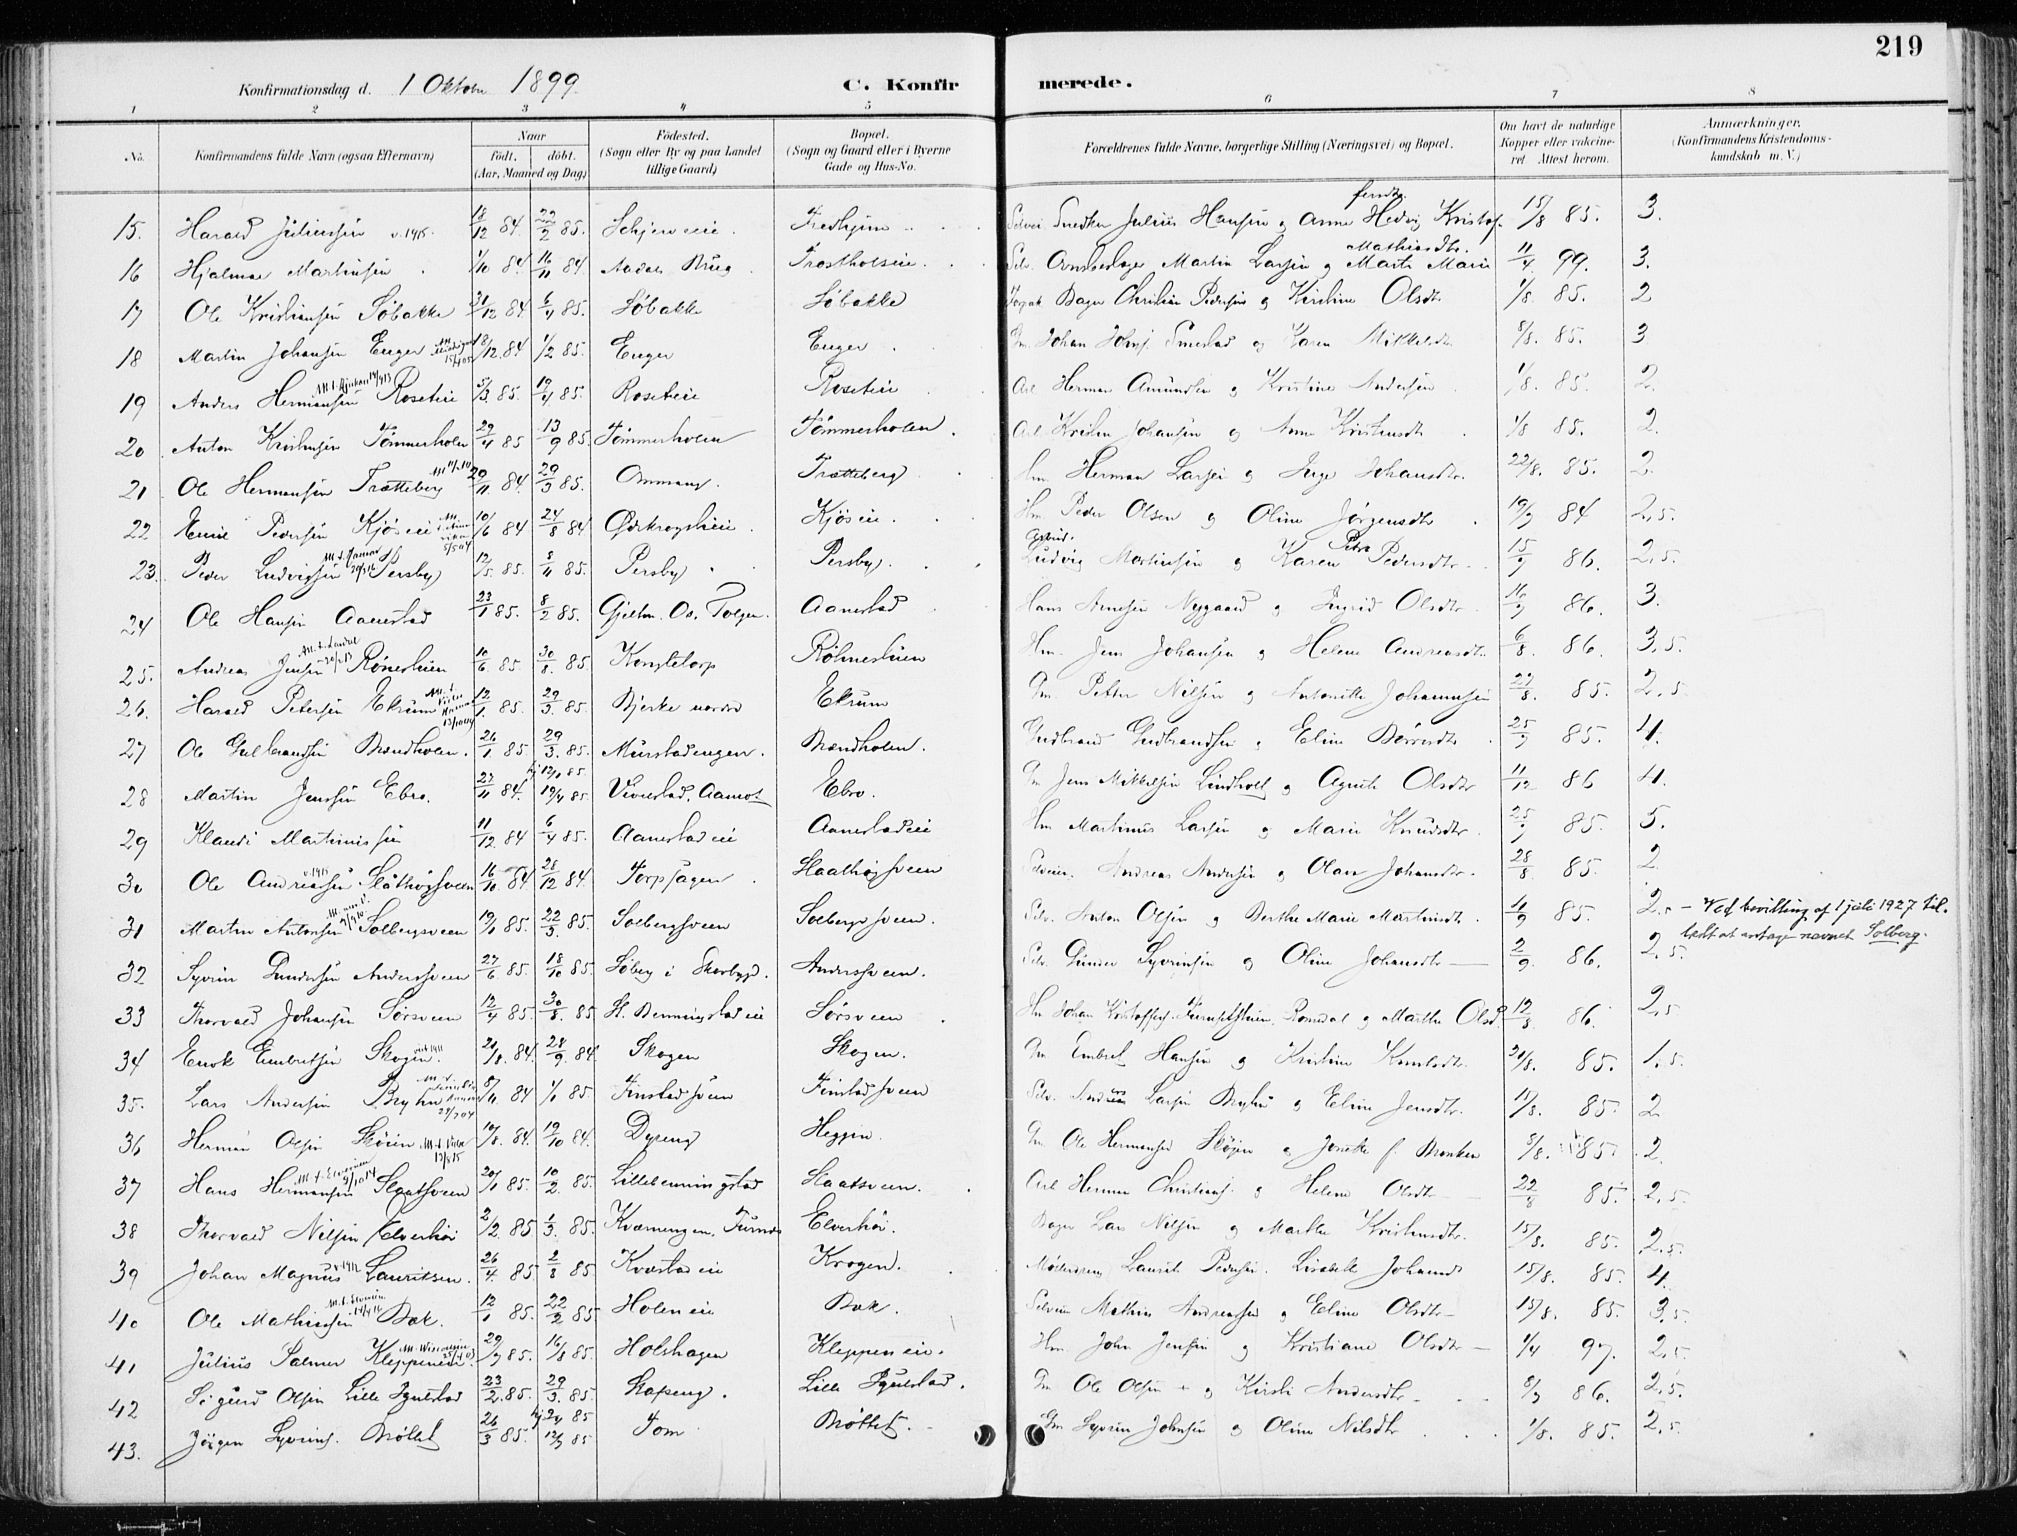 219
Konfirmationsdag d. 1 Oktober 1899. C. Konfirmerede.
1 2 3 4 5 6 7 8
No. Konfirmandens fulde Navn (ogsaa Efternavn) Naar født, døbt. (Aar, Maaned og Dag) Fødested. (Sogn eller By og paa Landet tillige Gaard) Bopæl. (Sogn og Gaard eller i Byerne Gade og Hus-No. Forældrenes fulde Navne, borgerlige Stilling (Næringsvei) og Bopæl. Om havt de naturlige Kopper eller vakcineret. Attest herom. Anmærkninger. (Konfirmandens Kristendomskundskab m. V.)
15. Harald Juliussen v. 1915. 18/12 84. 22/2 85. Fredhjem Snedker Julius Hansen og Anne Hedvig Kristofersdtr. 15/8 85. 3.
16 Hjalmar Martinsen 1/10 84 16/11 84. Aadals Brug Martin Larsen og Marte Marie Mathiasdtr. 11/4 99. 3.
17 Ole Kristiansen Søbakke 31/12 84 6/4 85. Søbakke Søbakke Bager Christian Pedersen og Kirstine Olsdtr 1/8. 85. 2
18 Martin Johansen Enger 18/12. 84. 1/2 85. Enger Enger Gm. Johan Johs. Smestad og Karen Mikkelsdtr 8/8. 85. 3
19 Anders Hermansen Roseteie 5/3. 85. 19/4 85. Roseteie Roseteie Arb Herman Amundsen og Kristine Andersen 1/8. 85. 2.
20 Anton Kristiansen Tømmerholen 29/4 85 13/9 85. Tømmerholen Tømmerholen Arb. Kristen Johansen og Anne Kristensdtr 1/8 85. 2.
21 Ole Hermansen Trætteberg 20/11 84. 29/3 85. Ommang Trætteberg Hm Herman Larsen og Inge Johansdtr. 22/8. 85. 2.
22 Emil Pedersen Kjøseie 10/6 84 24/8 84 Kjøseie Hm. Peder Olsen og Oline Jørgensdtr 19/9 84 2,5.
23. Peder Ludvigsen Persby 12/5. 85. 8/11 85. Persby Persby. Ludvig Martinsen og Karen Petra Pedersdtr. 15/9 86. 2,5.
24 Ole Hansen Aanestad 23/1 85. 8/2 85. Os. Tolgen. Aanestad Hans Arnesen Nygaard og Ingrid Olsdtr. 16/9 86. 3.
25. Andreas Jensen Rønerhuen 10/6 85. 30/8. 85. Kongletorp Røhnerhuen Hm. Jens Johansen og Helene Andreasdtr. 6/8 86. 3,5.
26. Harald Petersen Ekrum 12/1. 85. 29/3. 85. Bjerke nordre Ekrum Gm. Petter Nilsen og Antonette Johannesen 29/8. 85. 2,5
27 Ole Gulbrandsen Brændholen. 26/1. 85. 29/3. 85. Murstadengen. Brændholen. Gudbrand Gudbrandsen og Eline Børresdtr 25/9 85. 4.
28 Martin Jensen Ebro. 27/11 84. 19/4 85. Vivestad. Aamot Ebro. Gm Jens Mikkelsen Lindholt og Agnete Olsdtr 11/12 86 4.
29 Klaudi Martinussen 11/12 84 6/4 85. Aanestadeie Aanestadeie Hm Martinus Larsen og Marie Knudsdtr. 25/9 85. 5.
30 Ole Andreassen Slåthøgsveen v. 1915 16/10 84 28/12 84. Torpsagen Slaathøgsveen Andreas Andersen og Olave Johansdtr. 28/8 85. 2
31 Martin Antonsen Solbergsveen 19/1 85. 22/3. 85. Solbergsveen Solbergsveen. Selv. Anton Olsen og Berthe Marie Martinsdtr. 4/9 85. 2. – Ved bevilling af 1 juli 1927 til-
ladt at antage navnet Solberg.
32 Syverin Gundersen Andersveen 27/6 85. 18/10 85. Søberg i Skorbygd. Andersveen. Selv. Gunder Syverinsen og Oline Johansdtr 2/9. 86. 2,5.
33 Thorvald Johansen Sørsveen 12/4 85. 30/8. 85. St. Benningstadeie Sørsveen Hm Johan Kristoffersen Romedal og Marthe Olsd. 12/8 86. 2,5
34 Enok Embretsen Skogen. 21/8. 84. 28/9. 84. Skogen Skogen. Gm Embret Hansen og Kristine 20/8. 85. 1,5.
35. Lars Andersen Bryhn 8/11. 84 1/1 85. Finstadsveen Finstadsveen Selv. Anders Larsen Bryhn og Eline Jensdtr. 11/8. 85. 2
36 Herman Olsen Skøien 10/8. 84. 19/10 84. Dyreng Heggen. Gm. Ole Hermansen Skøien og Jonette f. Bronken 8/8. 85. 2.
37 Hans Hermansen Slaatsveen 20/1 85. 10/2. 85. Lillebenningstad Slaatsveen. Arb Herman Christians. og Helene Olsdtr 22/8 85. 2,5.
38 Thorvald Nilsen Elverhøi 2/2. 85 1/3. 85. Kværnengen. Furnes Elverhøi. Bager Lars Nilsen og Marthe Kristensdtr. 15/8. 85. 2,5.
39 Johan Magnus Lauritsen. v. 1912 26/4. 85. 2/8 85 Kvæstadeie Krogen. Laurits Pedersen. Lisabeth Johansdtr 15/8. 85. 4.
40 Ole Mathiassen Bæk. 12/1 85. 22/2 85. Holeneie Bæk. Mathias Andreassen og Eline Olsdtr 15/8. 85. 3,5.
41 Julius Salmer Kleppeneie 29/7 85. 16/8 85. Holshagen Kleppeneie. Hm. John Jensen og Kristiane Olsdtr 1/4 97. 2,5.
42 Sigurd Olsen Lille Ignestad 23/2. 85. 29/3. 85. Skapeng. Lille Ignestad. Gm Ole Olsen + og Kirsti Andersdtr 8/9 86. 2,5.
43. Jørgen Syverins. Brøttet 26/3 85. 12/7 85 Tom Brøttet. Gm Syverin Johnsen og Oline Nilsdtr 1/8. 85. 2,5.